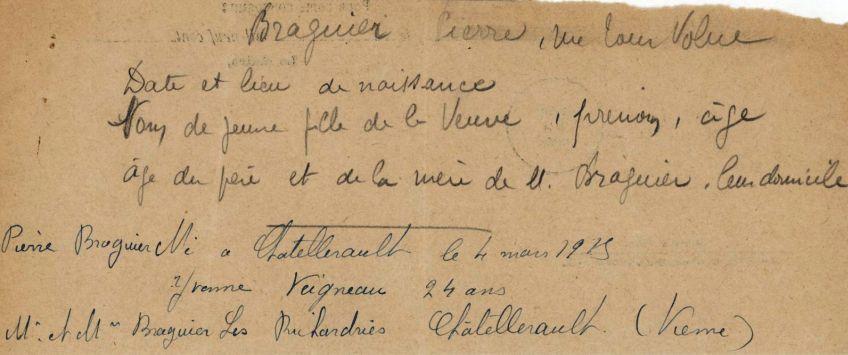 Braguier Pierre, rue Cour Volue
Date et lieu de naissance
Nom de jeune fille de la Veuve, prénom, âge
âge du père et de la mère de M. Braguier, leur domicile
Pierre Braguier Né a Chatellerault le 4 mars 19
Yvonne Veigneau 24 ans
Mr et Mme Braguier Les Richardries Châtellerault. (Vienne)